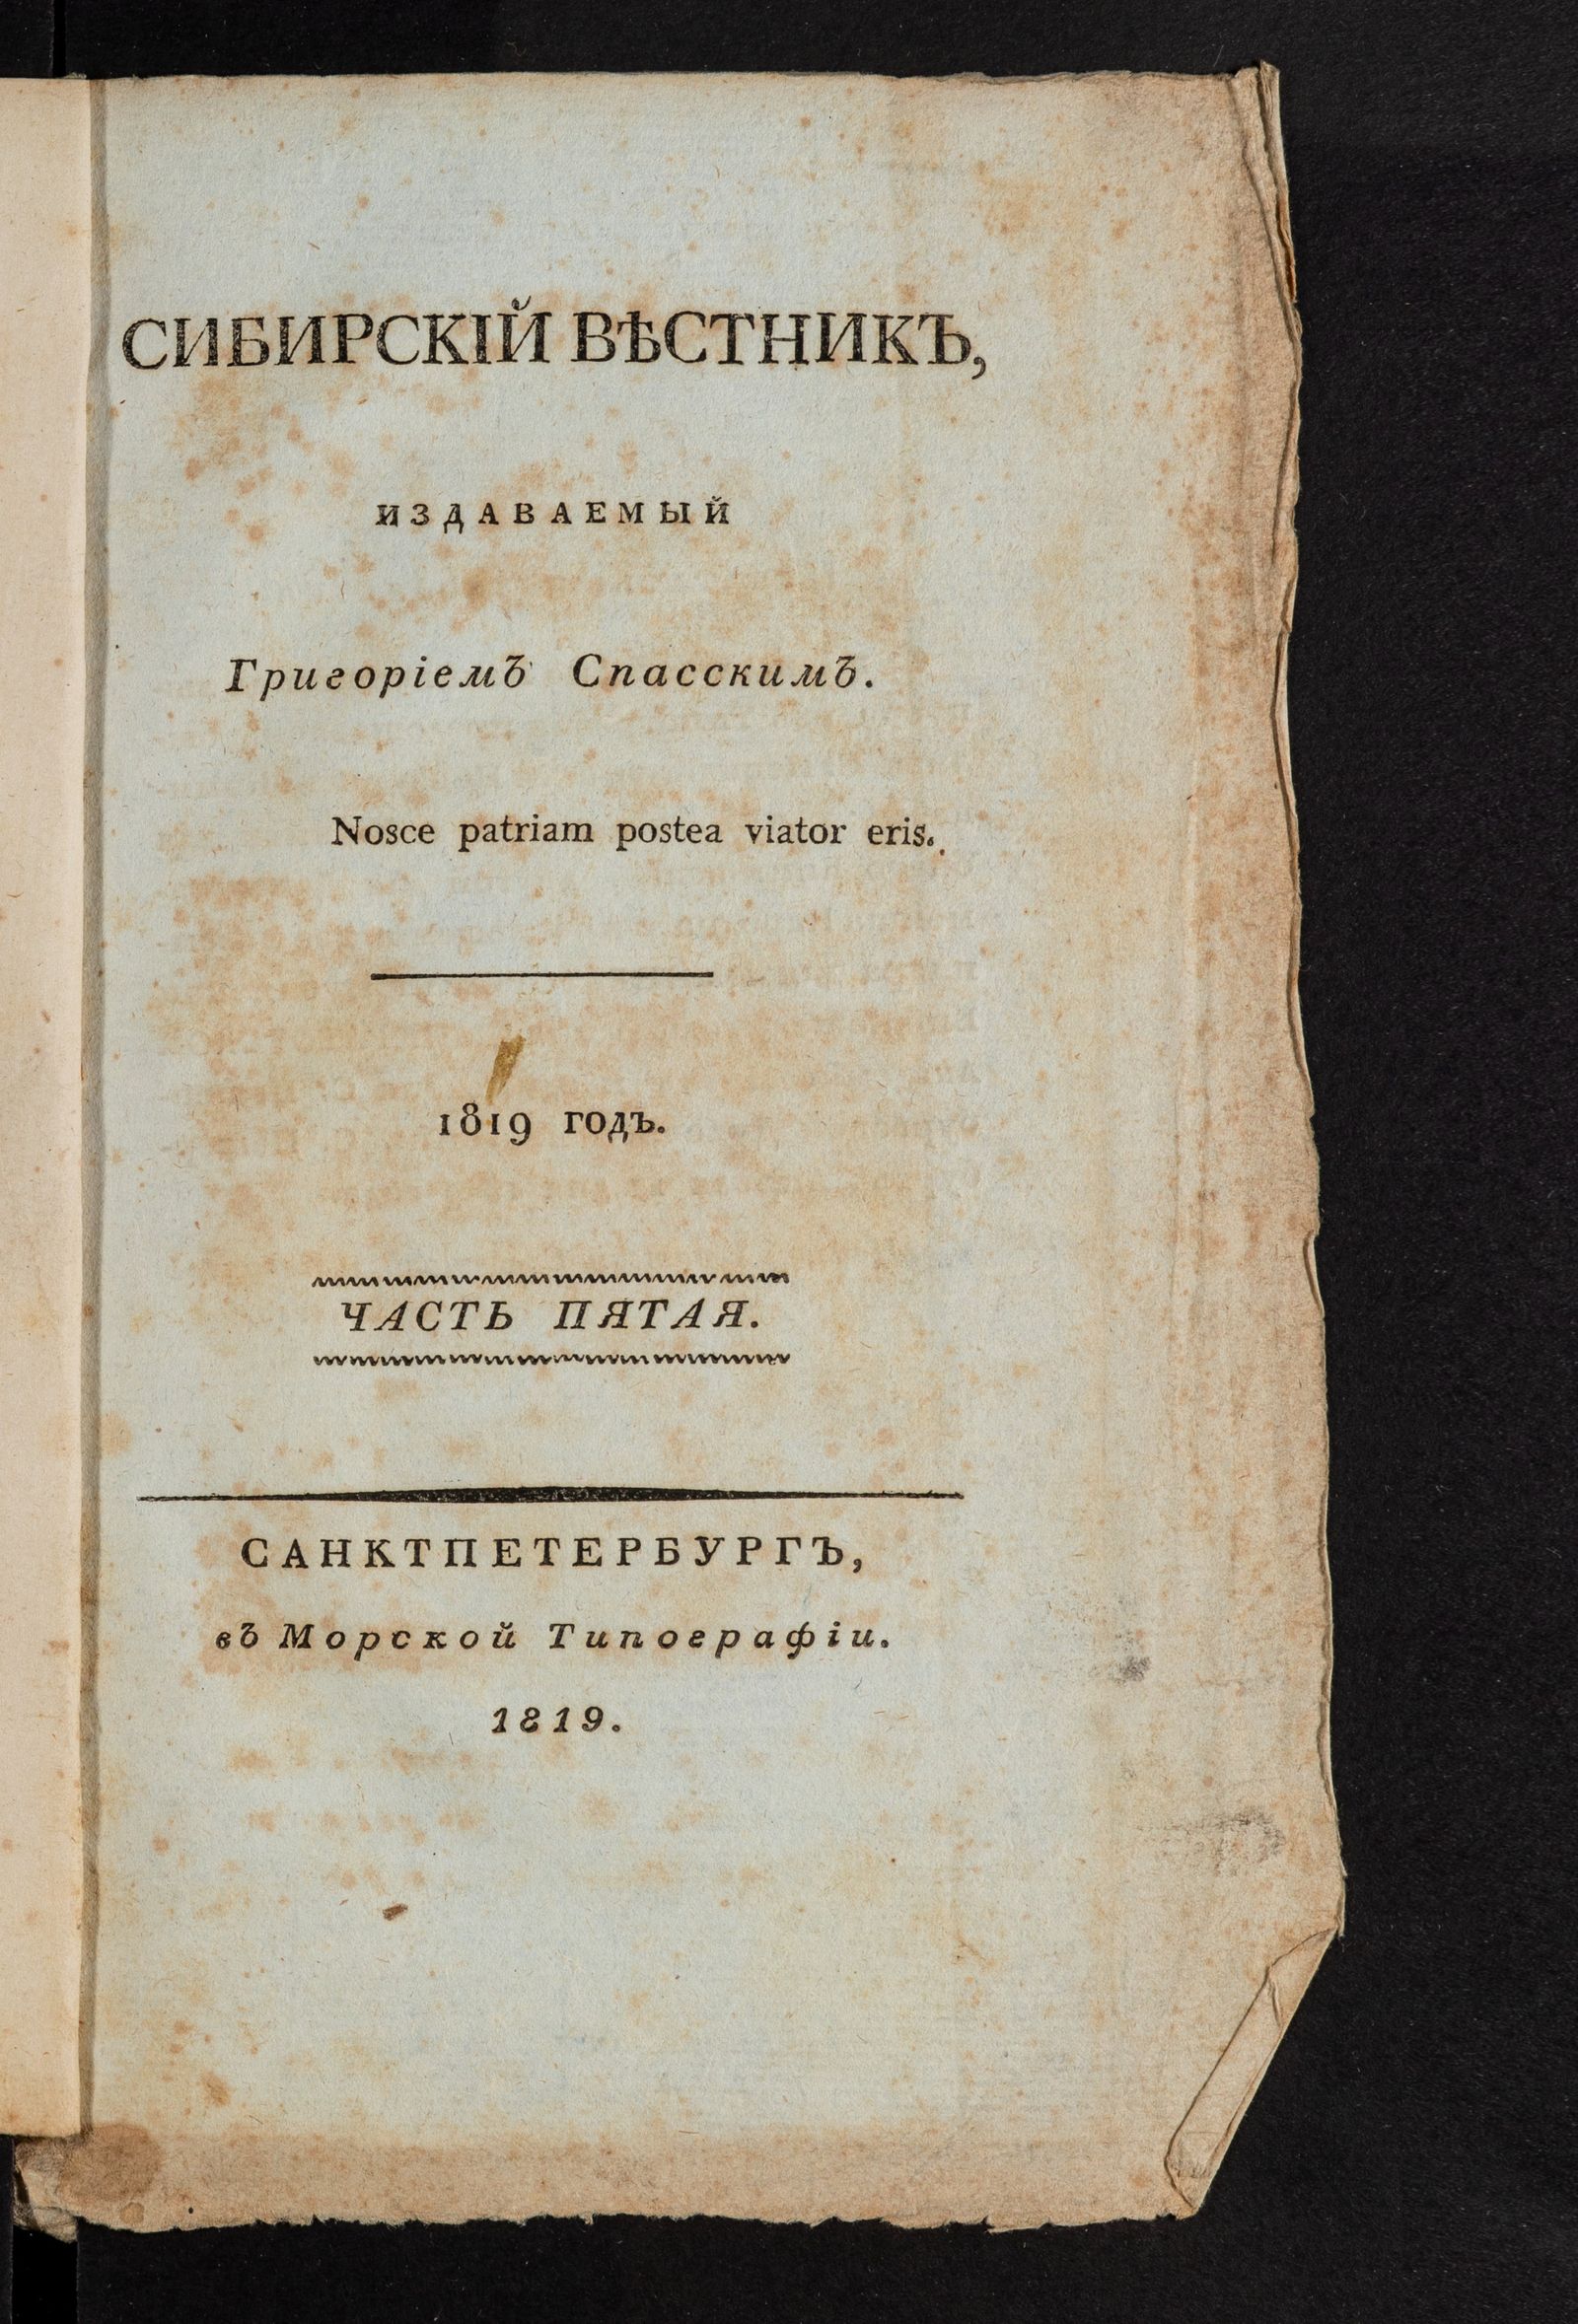 СИБИРСКІЙ ВѢСТНИКЪ,
ИЗДАВАЕМЫЙ
Григоріемъ Спасскимъ.
Nosce patriam postea viator eris.
1819 годъ.
ЧАСТЬ ПЯТАЯ.
САНКТПЕТЕРБУРГЪ,
въ Морской Типографіи.
1819.